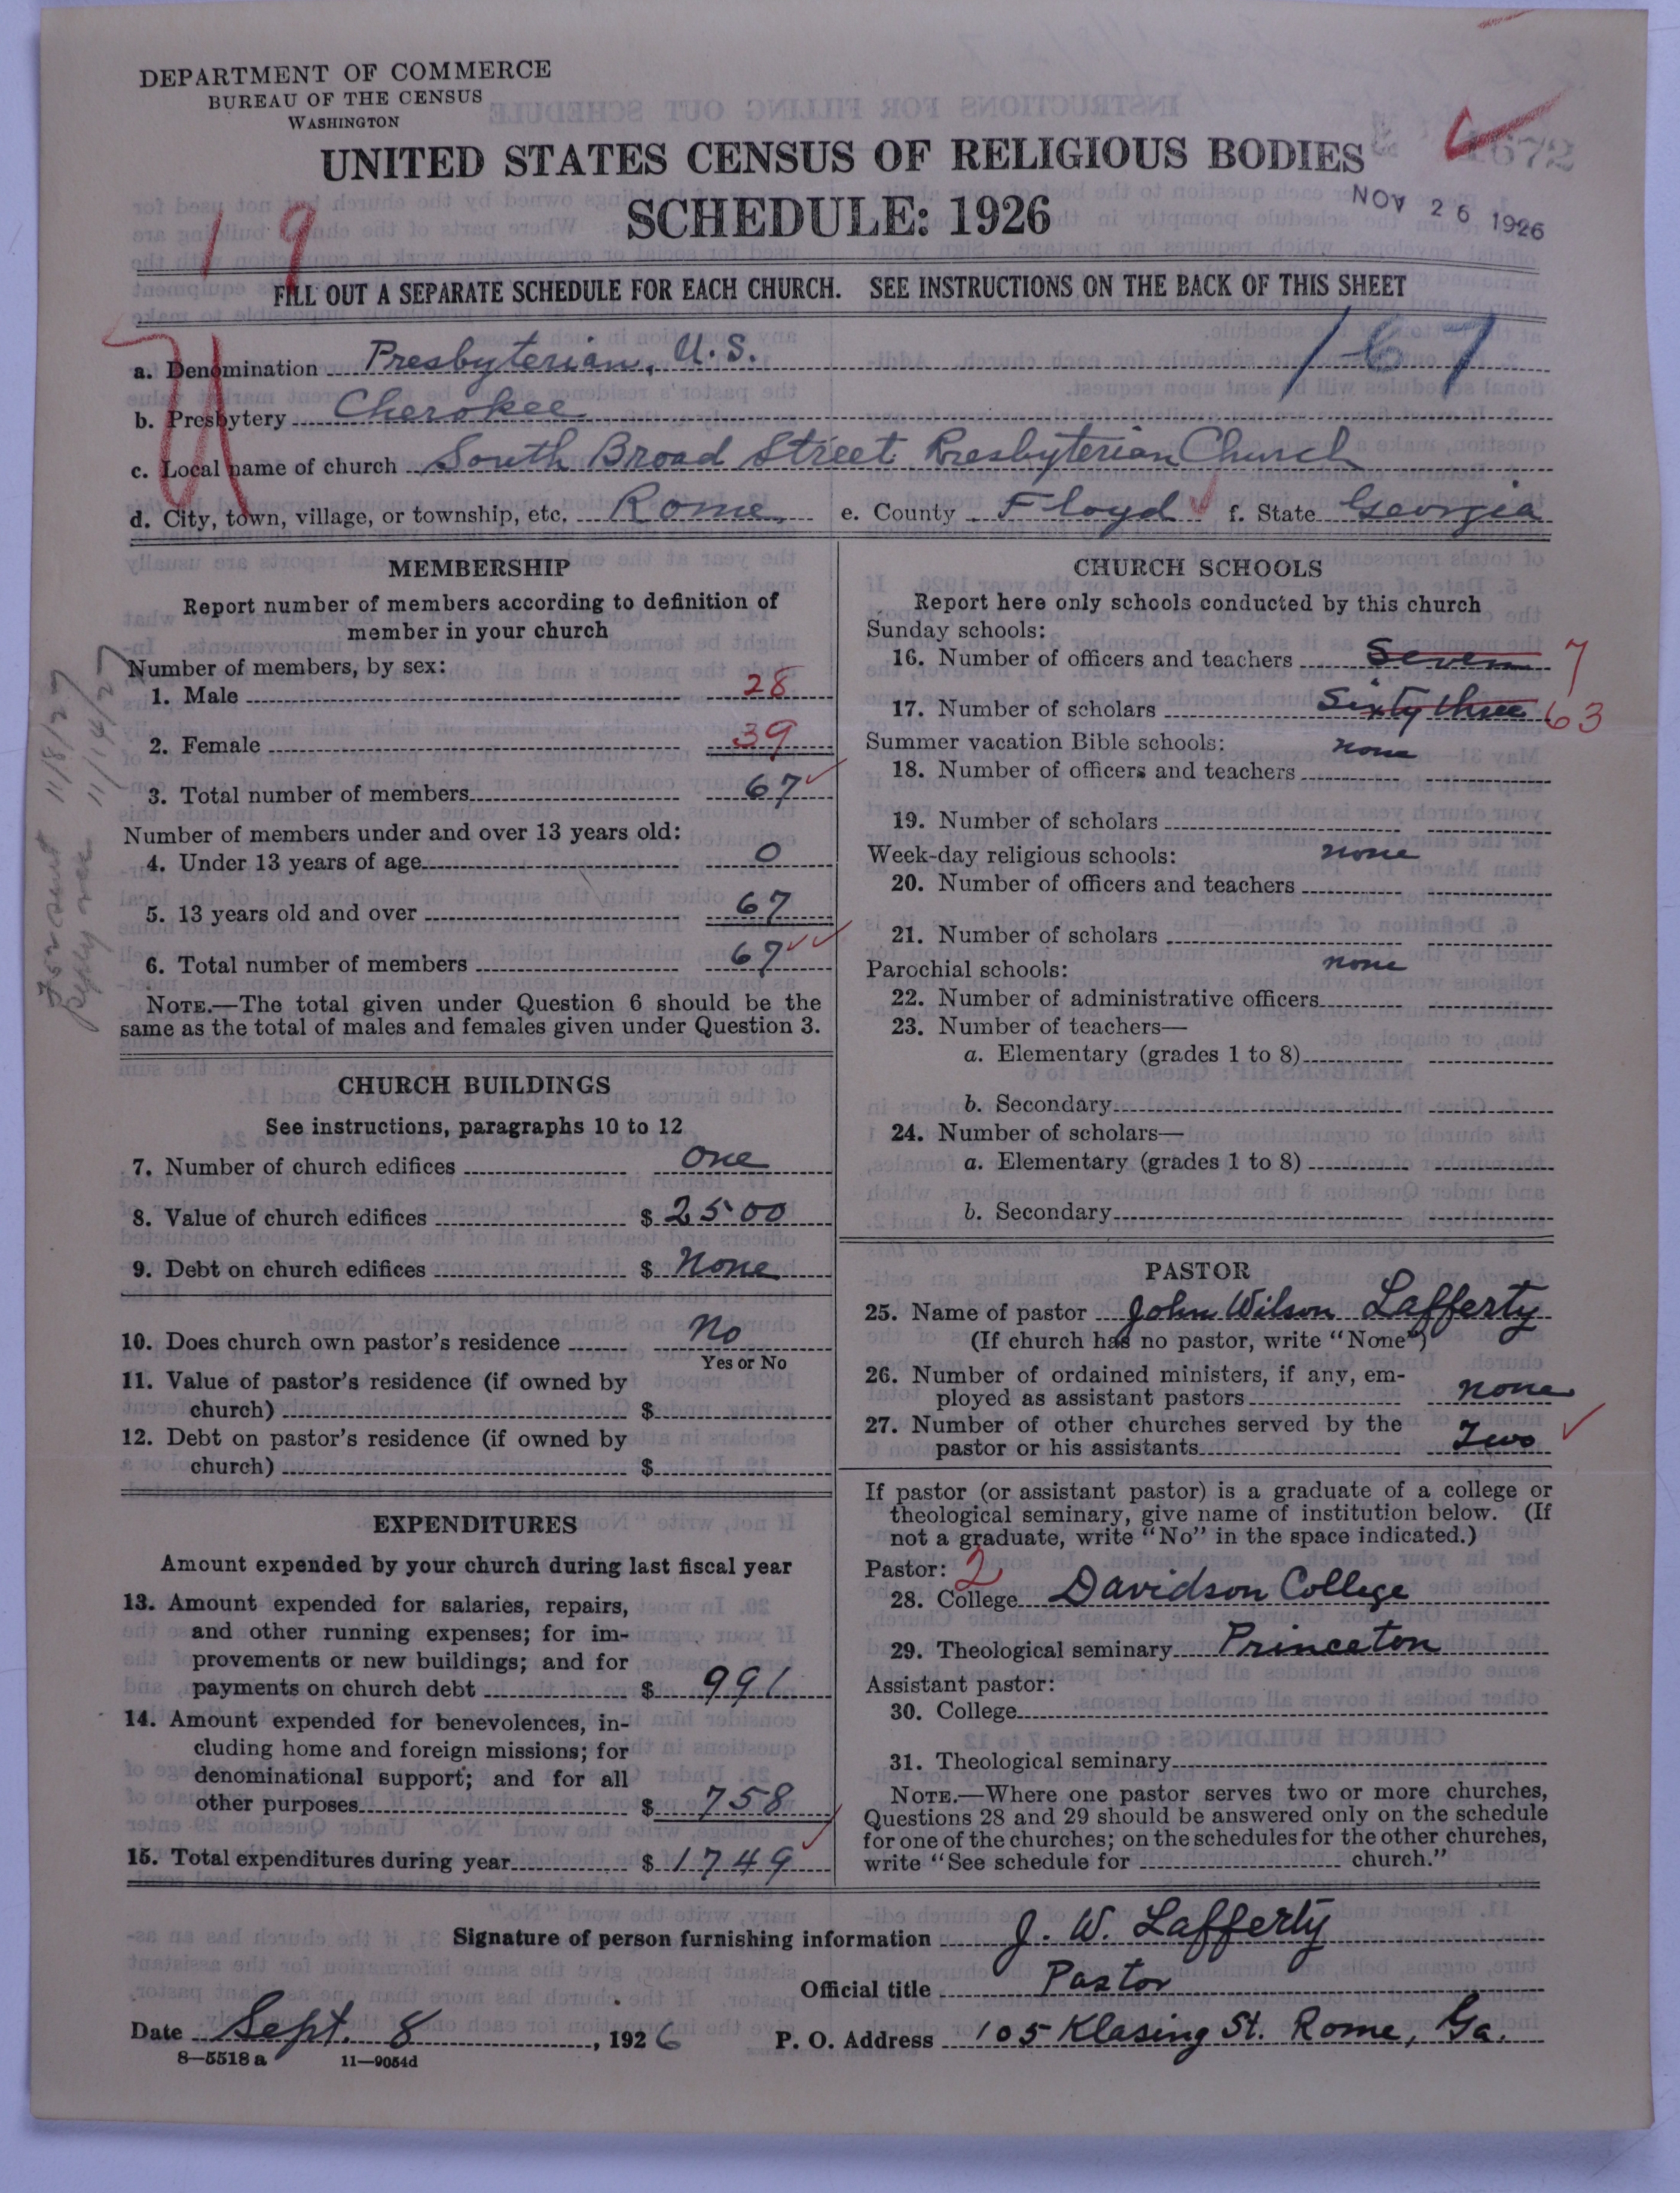 DEPARTMENT OF COMMERCE
BUREAU OF THE CENSUS
WASHINGTON
UNITED STATES CENSUS OF RELIGIOUS BODIES
SCHEDULE: 1926
NOV 26 1926
19
FILL OUT A SEPARATE SCHEDULE FOR EACH CHURCH. SEE INSTRUCTIONS ON THE BACK OF THIS SHEET
167
a. Denomination Presbyterian, U.S.
b. Presbytery Cherokee
c. Local name of church South Broad Street Presbyterian Church
d. City, town, village, or township, etc. Rome e. County Floyd f. State Georgia
MEMBERSHIP
Report number of members according to definition of
member in your church
Number of members, by sex:
1. Male 28
2. Female 39
3. Total number of members 67
Number of members under and over 13 years old:
4. Under 13 years of age 0
5. 13 years old and over 67
6. Total number of members 67
NOTE.—The total given under Question 6 should be the
same as the total of males and females given under Question 3.
11/8/27
11/14/27
CHURCH BUILDINGS
See instructions, paragraphs 10 to 12
7. Number of church edifices One
8. Value of church edifices $ 2500
9. Debt on church edifices $ None
10. Does church own pastor's residence No
Yes or No
11. Value of pastor's residence (if owned by
church) $
12. Debt on pastor's residence (if owned by
church) $
EXPENDITURES
Amount expended by your church during last fiscal year
13. Amount expended for salaries, repairs,
and other running expenses; for im-
provements or new buildings; and for
payments on church debt $ 991
14. Amount expended for benevolences, in-
cluding home and foreign missions; for
denominational support; and for all
other purposes $ 758
15. Total expenditures during year $ 1749
CHURCH SCHOOLS
Report here only schools conducted by this church
Sunday schools:
16. Number of officers and teachers Seven 7
17. Number of scholars Sixty three 63
Summer vacation Bible schools: none
18. Number of officers and teachers
19. Number of scholars
Week-day religious schools: none
20. Number of officers and teachers
21. Number of scholars
Parochial schools: none
22. Number of administrative officers
23. Number of teachers—
a. Elementary (grades 1 to 8)
b. Secondary
24. Number of scholars—
a. Elementary (grades 1 to 8)
b. Secondary
PASTOR
25. Name of pastor John Wilson Lafferty
(If church has no pastor, write "None")
26. Number of ordained ministers, if any, em-
ployed as assistant pastors none
27. Number of other churches served by the
pastor or his assistants Two
If pastor (or assistant pastor) is a graduate of a college or
theological seminary, give name of institution below. (If
not a graduate, write "No" in the space indicated.)
Pastor: 2
28. College Davidson College
29. Theological seminary Princeton
Assistant pastor:
30. College
31. Theological seminary
NOTE.—Where one pastor serves two or more churches,
Questions 28 and 29 should be answered only on the schedule
for one of the churches; on the schedules for the other churches,
write "See schedule for church."
Signature of person furnishing information J. W. Lafferty
Official title Pastor
Date Sept. 8, 1926 P. O. Address 105 Klasing St. Rome, Ga.
8—5518 a 11—9054d